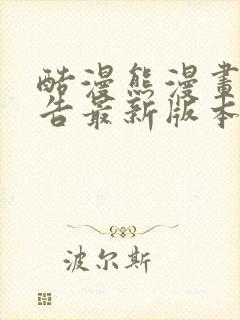 酷漫熊漫畫
告最新版本
波尔斯